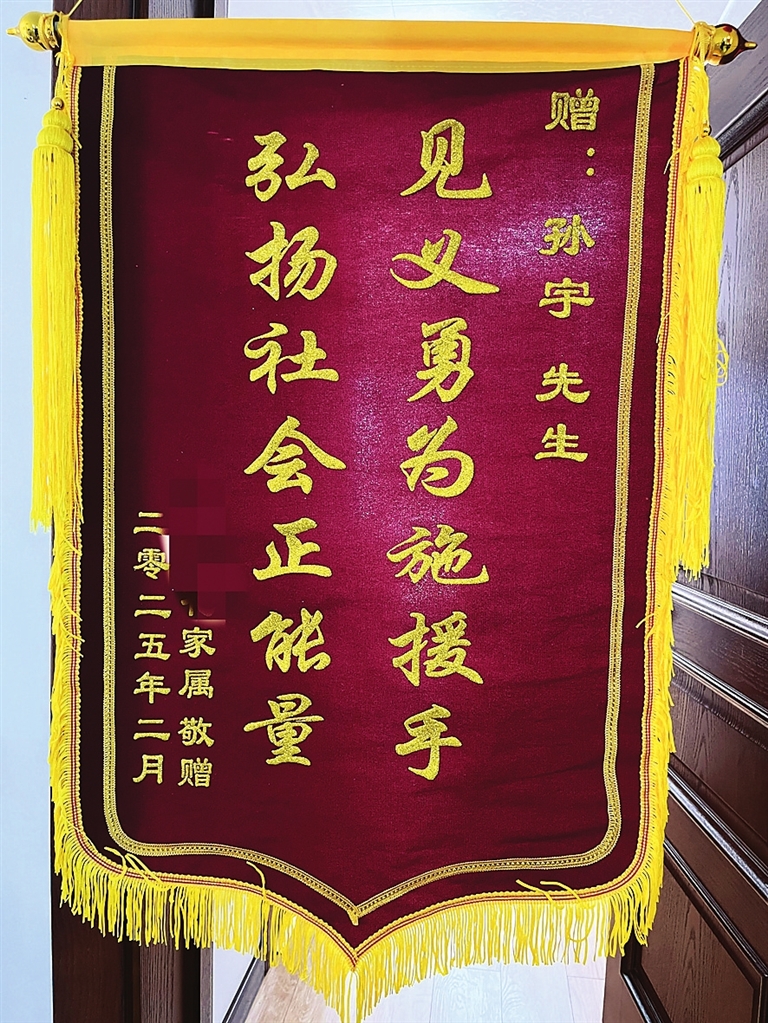 赠：孙宇先生
见义勇为施援手
弘扬社会正能量
家属敬赠
二零二五年二月